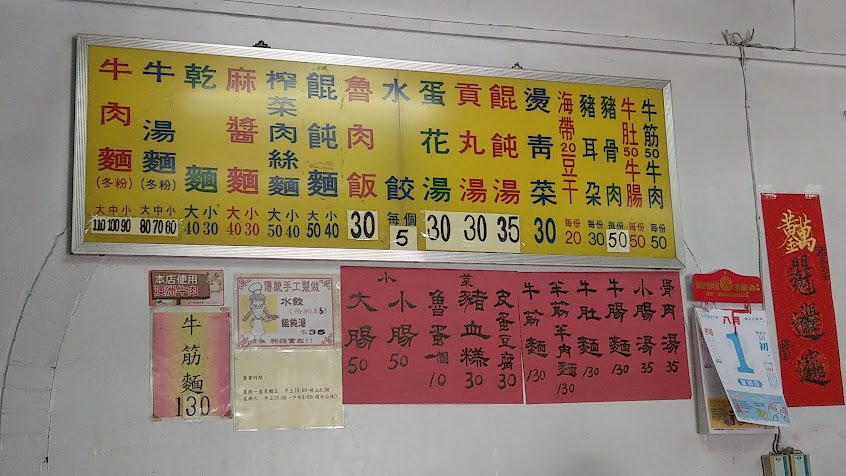 牛肉麵(冬粉) 大中小 110 100 90
牛湯麵(冬粉) 大中小 80 70 60
乾麵 大小 40 30
麻醬麵 大小 40 30
榨菜肉絲麵 大小 50 40
餛飩麵 大小 50 40
魯肉飯 30
水餃 每個 5
蛋花湯 30
貢丸湯 30
餛飩湯 35
燙青菜 30
海帶20豆干 每份 20
豬耳朵 每份 30
豬骨肉 每份 50
牛肚50牛腸 每份 50
牛筋50牛肉 每份 50
本店使用
澳洲牛肉
牛筋麵
130
傳統手工製做
水餃
餛飩湯
35
營業時間:
大腸 50
小小腸 50
魯蛋一個 10
菜豬血糕 30
皮蛋豆腐 30
牛筋麵 130
半筋半肉麵 130
牛肚麵 130
牛腸麵 130
小腸湯 35
骨肉湯 35
八月
1
初